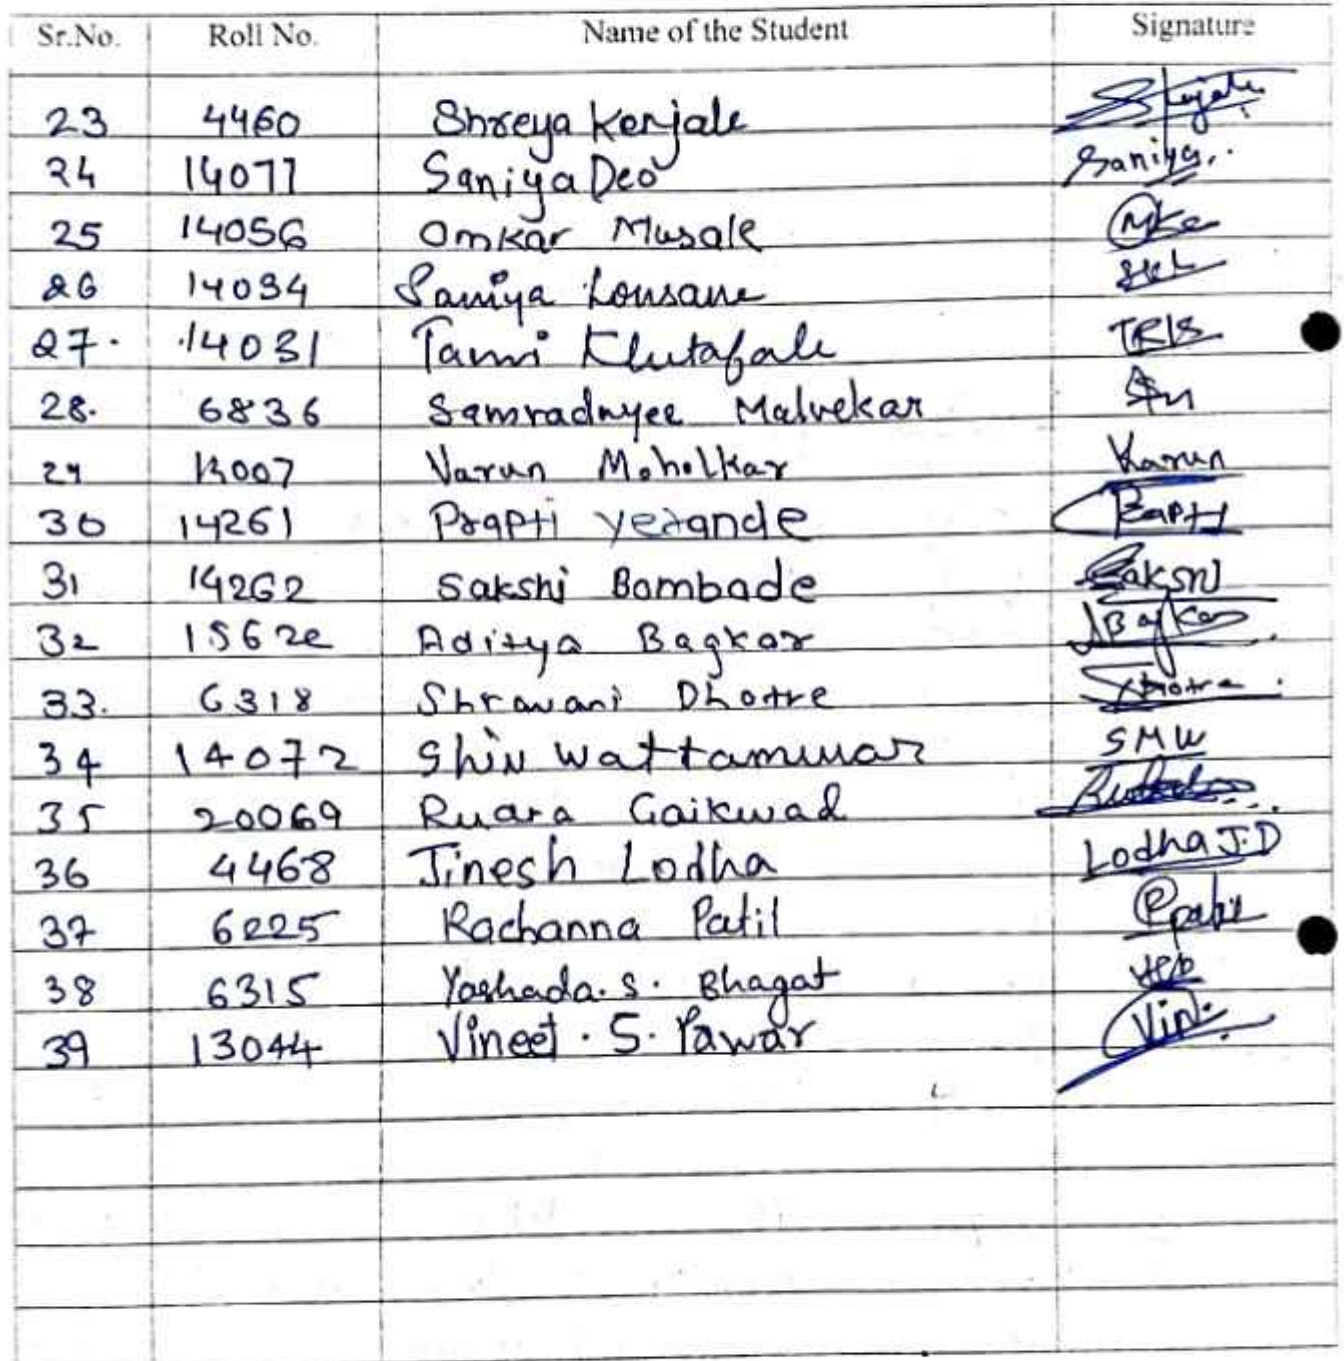 Sr.No. Roll No. Name of the Student Signature
23 4460 Shreya Kenjale
24 14077 Saniya Deo Saniya..
25 14056 Omkar Musale
26 14034 Saniya Lonsane SKL
27. 14031 Tanvi TRIS
28. 6836 Samradnyee Malvekar
29 13007 Varun Moholkar Varun
30 14261 Prapti yerande Prapti
31 14262 Sakshi Bombade Sakshi
32 Aditya Bagkar ABagkar
33. 6318 Shravani Dhotre SDhotre
34 14072 Shiv wattamwar SMW
35 20069 Ruara Gaikwad
36 4468 Jinesh Lodha Lodha J.D
37 6225 Rachanna Patil Rpatil
38 6315 Yashada.S. Bhagat
39 13044 Vineet. S. Pawar Vin